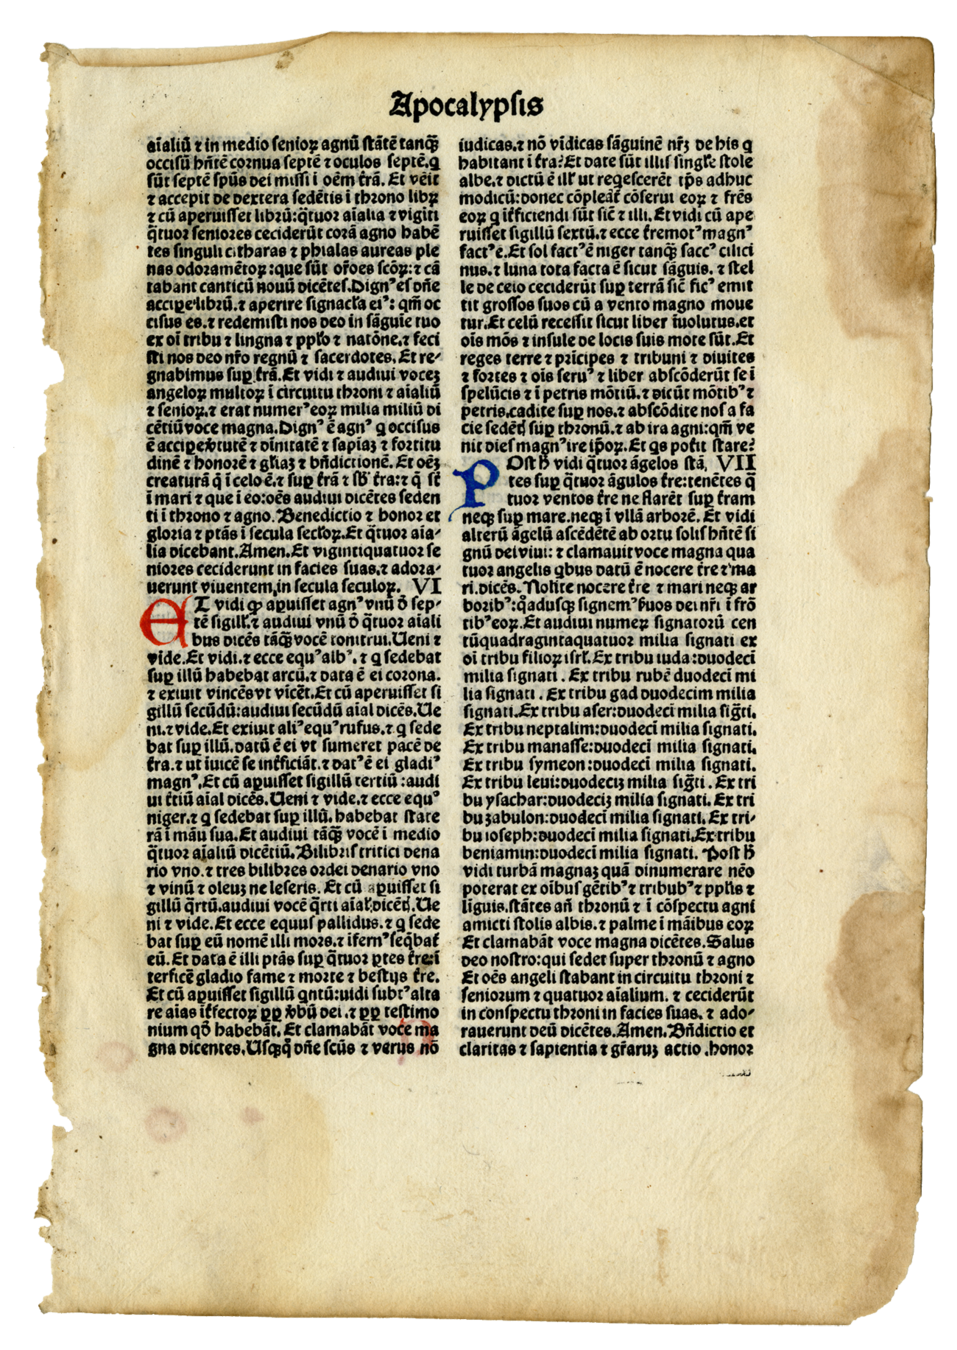 Apocalypsis
aīaliū ⁊ in medio senioꝝ agnū stātē tanqꝫ
occisū hn̄tē cornua septē ⁊ oculos septē. q
sūt septē spūs dei missi ī oēm t̄rā. Et vēit
⁊ accepit de dextera sedētis ī throno libꝝ
⁊ cū aperuisset librū: q̄tuor aīalia ⁊ vigīti
q̄tuor seniores ceciderūt corā agno habē
tes singuli citharas ⁊ phialas aureas ple
nas odoramētoꝝ: que sūt or̄oes scōꝝ: ⁊ cā
tabant canticū nouū dicētes. Dignꝰ es dn̄e
accipe librū. ⁊ aperire signacl̄a eiꝰ: qm̄ oc
cisus es. ⁊ redemisti nos deo in sāguīe tuo
ex oī tribu ⁊ lingua ⁊ ppl̄o ⁊ natōne. ⁊ feci
sti nos deo nr̄o regnū ⁊ sacerdotes. Et re-
gnabimus suꝑ t̄rā. Et vidi ⁊ audiui voceꝫ
angeloꝝ multoꝝ ī circuitu throni ⁊ aīaliū
⁊ senioꝝ. ⁊ erat numerꝰ eoꝝ milia miliū di
cētiū voce magna. Dignꝰ ē agnꝰ q occisus
ē accipe v̄tutē ⁊ dīnitatē ⁊ sapīaꝫ ⁊ fortitu
dinē ⁊ honorē ⁊ gl̄iaꝫ ⁊ bn̄dictionē. Et oēꝫ
creaturā q̄ ī celo ē. ⁊ suꝑ t̄rā ⁊ sb̄ t̄ra: ⁊ q̄ st̄
ī mari ⁊ que ī eo: oēs audiui dicētes seden
ti ī throno ⁊ agno. Benedictio ⁊ honor et
gloria ⁊ ptās ī secula secl̄oꝝ. Et q̄tuor aīa-
lia dicebant. Amen. Et vigintiquatuor se
niores ceciderunt in facies suas. ⁊ adora-
uerunt viuentem in secula seculoꝝ. VI
ET vidi qꝙ apuisset agnꝰ vnū d̄ sep-
tē sigill'. ⁊ audiui vnū d̄ q̄tuor aīali
bus dicēs tāqꝫ vocē tonitrui. Ueni ⁊
vide. Et vidi. ⁊ ecce equꝰ albꝰ. ⁊ q sedebat
suꝑ illū habebat arcū. ⁊ data ē ei corona.
⁊ exiuit vincēs vt vīcēt. Et cū aperuisset si
gillū secūdū: audiui secūdū aīal dicēs. Ue
ni. ⁊ vide. Et exiuit aliꝰ equꝰ rufus. ⁊ q sede
bat suꝑ illū. datū ē ei vt sumeret pacē de
t̄ra. ⁊ ut īuicē se int̄ficiāt. ⁊ datꝰ ē ei gladiꝰ
magnꝰ. Et cū aꝑuisset sigillū tertiū: audi
ui t̄tiū aīal dicēs. Ueni ⁊ vide. ⁊ ecce equꝰ
niger. ⁊ q sedebat suꝑ illū. habebat state
rā ī māu sua. Et audiui tāqꝫ vocē ī medio
q̄tuor aīaliū dicētiū. Bilibris tritici dena
rio vno. ⁊ tres bilibres ordei denario vno
⁊ vinū ⁊ oleuꝫ ne leseris. Et cū aꝑuisset si
gillū q̄rtū. audiui vocē q̄rti aīal' dicētꝭ. Ue
ni ⁊ vide. Et ecce equus pallidus. ⁊ q sede
bat suꝑ eū nomē illi mors. ⁊ īfernꝰ seq̄bat᷑
eū. Et data ē illi ptās suꝑ q̄tuor ꝑtes t̄re: ī
terficē gladio fame ⁊ morte ⁊ bestijs t̄re.
Et cū aꝑuisset sigillū qntū: vidi subtꝰ alta
re aīas īt̄fectoꝝ ꝓꝑ v̄bū dei. ⁊ ꝓꝑ testimo
nium qd̄ habebāt. Et clamabāt voce ma
gna dicentes. Usqꝫq̄ dn̄e scūs ⁊ verus nō
iudicas. ⁊ nō vīdicas sāguinē nr̄ꝫ de his q
habitant ī t̄ra? Et date sūt illis singl'e stole
albe. ⁊ dictū ē ill' ut reqescerēt tp̄s adhuc
modicū: donec cōpleāt᷑ cōserui eoꝝ ⁊ fr̄es
eoꝝ q īt̄ficiendi sūt sic̄ ⁊ illi. Et vidi cū ape
ruisset sigillū sextū. ⁊ ecce t̄remotꝰ magnꝰ
factꝰ ē. Et sol factꝰ ē niger tanqꝫ saccꝰ cilici
nus. ⁊ luna tota facta ē sicut sāguis. ⁊ stel
le de celo ceciderūt suꝑ terrā sic̄ ficꝰ emit
tit grossos suos cū a vento magno moue
tur. Et celū recessit sicut liber īuolutus. et
oīs mōs ⁊ insule de locis suis mote sūt. Et
reges terre ⁊ prīcipes ⁊ tribuni ⁊ diuites
⁊ fortes ⁊ oīs seruꝰ ⁊ liber abscōderūt se ī
spelūcis ⁊ ī petris mōtiū. ⁊ dicūt mōtibꝰ ⁊
petris. cadite suꝑ nos. ⁊ abscōdite nos a fa
cie sedētꝭ suꝑ thronū. ⁊ ab ira agni: qm̄ ve
nit dies magnꝰ ire ip̄oꝝ. Et qs poťit stare?
POst h̄ vidi q̄tuor āgelos stā, VII
tes suꝑ q̄tuor āgulos t̄re: tenētes q̄
tuor ventos t̄re ne flarēt suꝑ t̄ram
neqꝫ suꝑ mare. neqꝫ ī vllā arborē. Et vidi
alterū āgelū ascēdētē ab ortu solis hn̄tē si
gnū dei viui: ⁊ clamauit voce magna qua
tuor angelis qbus datū ē nocere t̄re ⁊ ma
ri. dicēs. Nolite nocere t̄re ⁊ mari neqꝫ ar
boribꝰ: q̄adusqꝫ signemꝰ ẜuos dei nr̄i ī frō
tibꝰ eoꝝ. Et audiui numeꝝ signatorū cen
tūquadragintaquatuor milia signati ex
oī tribu filioꝝ isrl'. Ex tribu iuda: duodecī
milia signati. Ex tribu rubē duodecī mi
lia signati. Ex tribu gad duodecim milia
signati. Ex tribu aser: duodecī milia siḡti.
Ex tribu neptalim: duodecī milia signati.
Ex tribu manasse: duodecī milia signati.
Ex tribu symeon: duodecī milia signati.
Ex tribu leui: duodeciꝫ milia siḡti. Ex tri
bu ysachar: duodeciꝫ milia signati. Ex tri
bu zabulon: duodecī milia signati. Ex tri-
bu ioseph: duodecī milia signati. Ex tribu
beniamin: duodecī milia signati. Post h̄
vidi turbā magnaꝫ quā dinumerare nēo
poterat ex oībus gētibꝰ ⁊ tribubꝰ ⁊ ppl̄is ⁊
līguis. stātes an̄ thronū ⁊ ī cōspectu agni
amicti stolis albis. ⁊ palme ī māibus eoꝝ
Et clamabāt voce magna dicētes. Salus
deo nostro: qui sedet super thronū ⁊ agno
Et oēs angeli stabant in circuitu throni ⁊
seniorum ⁊ quatuor aīalium. ⁊ ceciderūt
in conspectu throni in facies suas. ⁊ ado-
rauerunt deū dicētes. Amen. Bn̄dictio et
claritas ⁊ sapientia ⁊ gr̄aruꝫ actio. honor